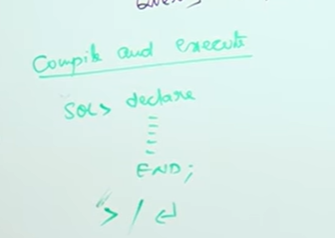 Compile and execute
SQL> declare
END;
> / ↵